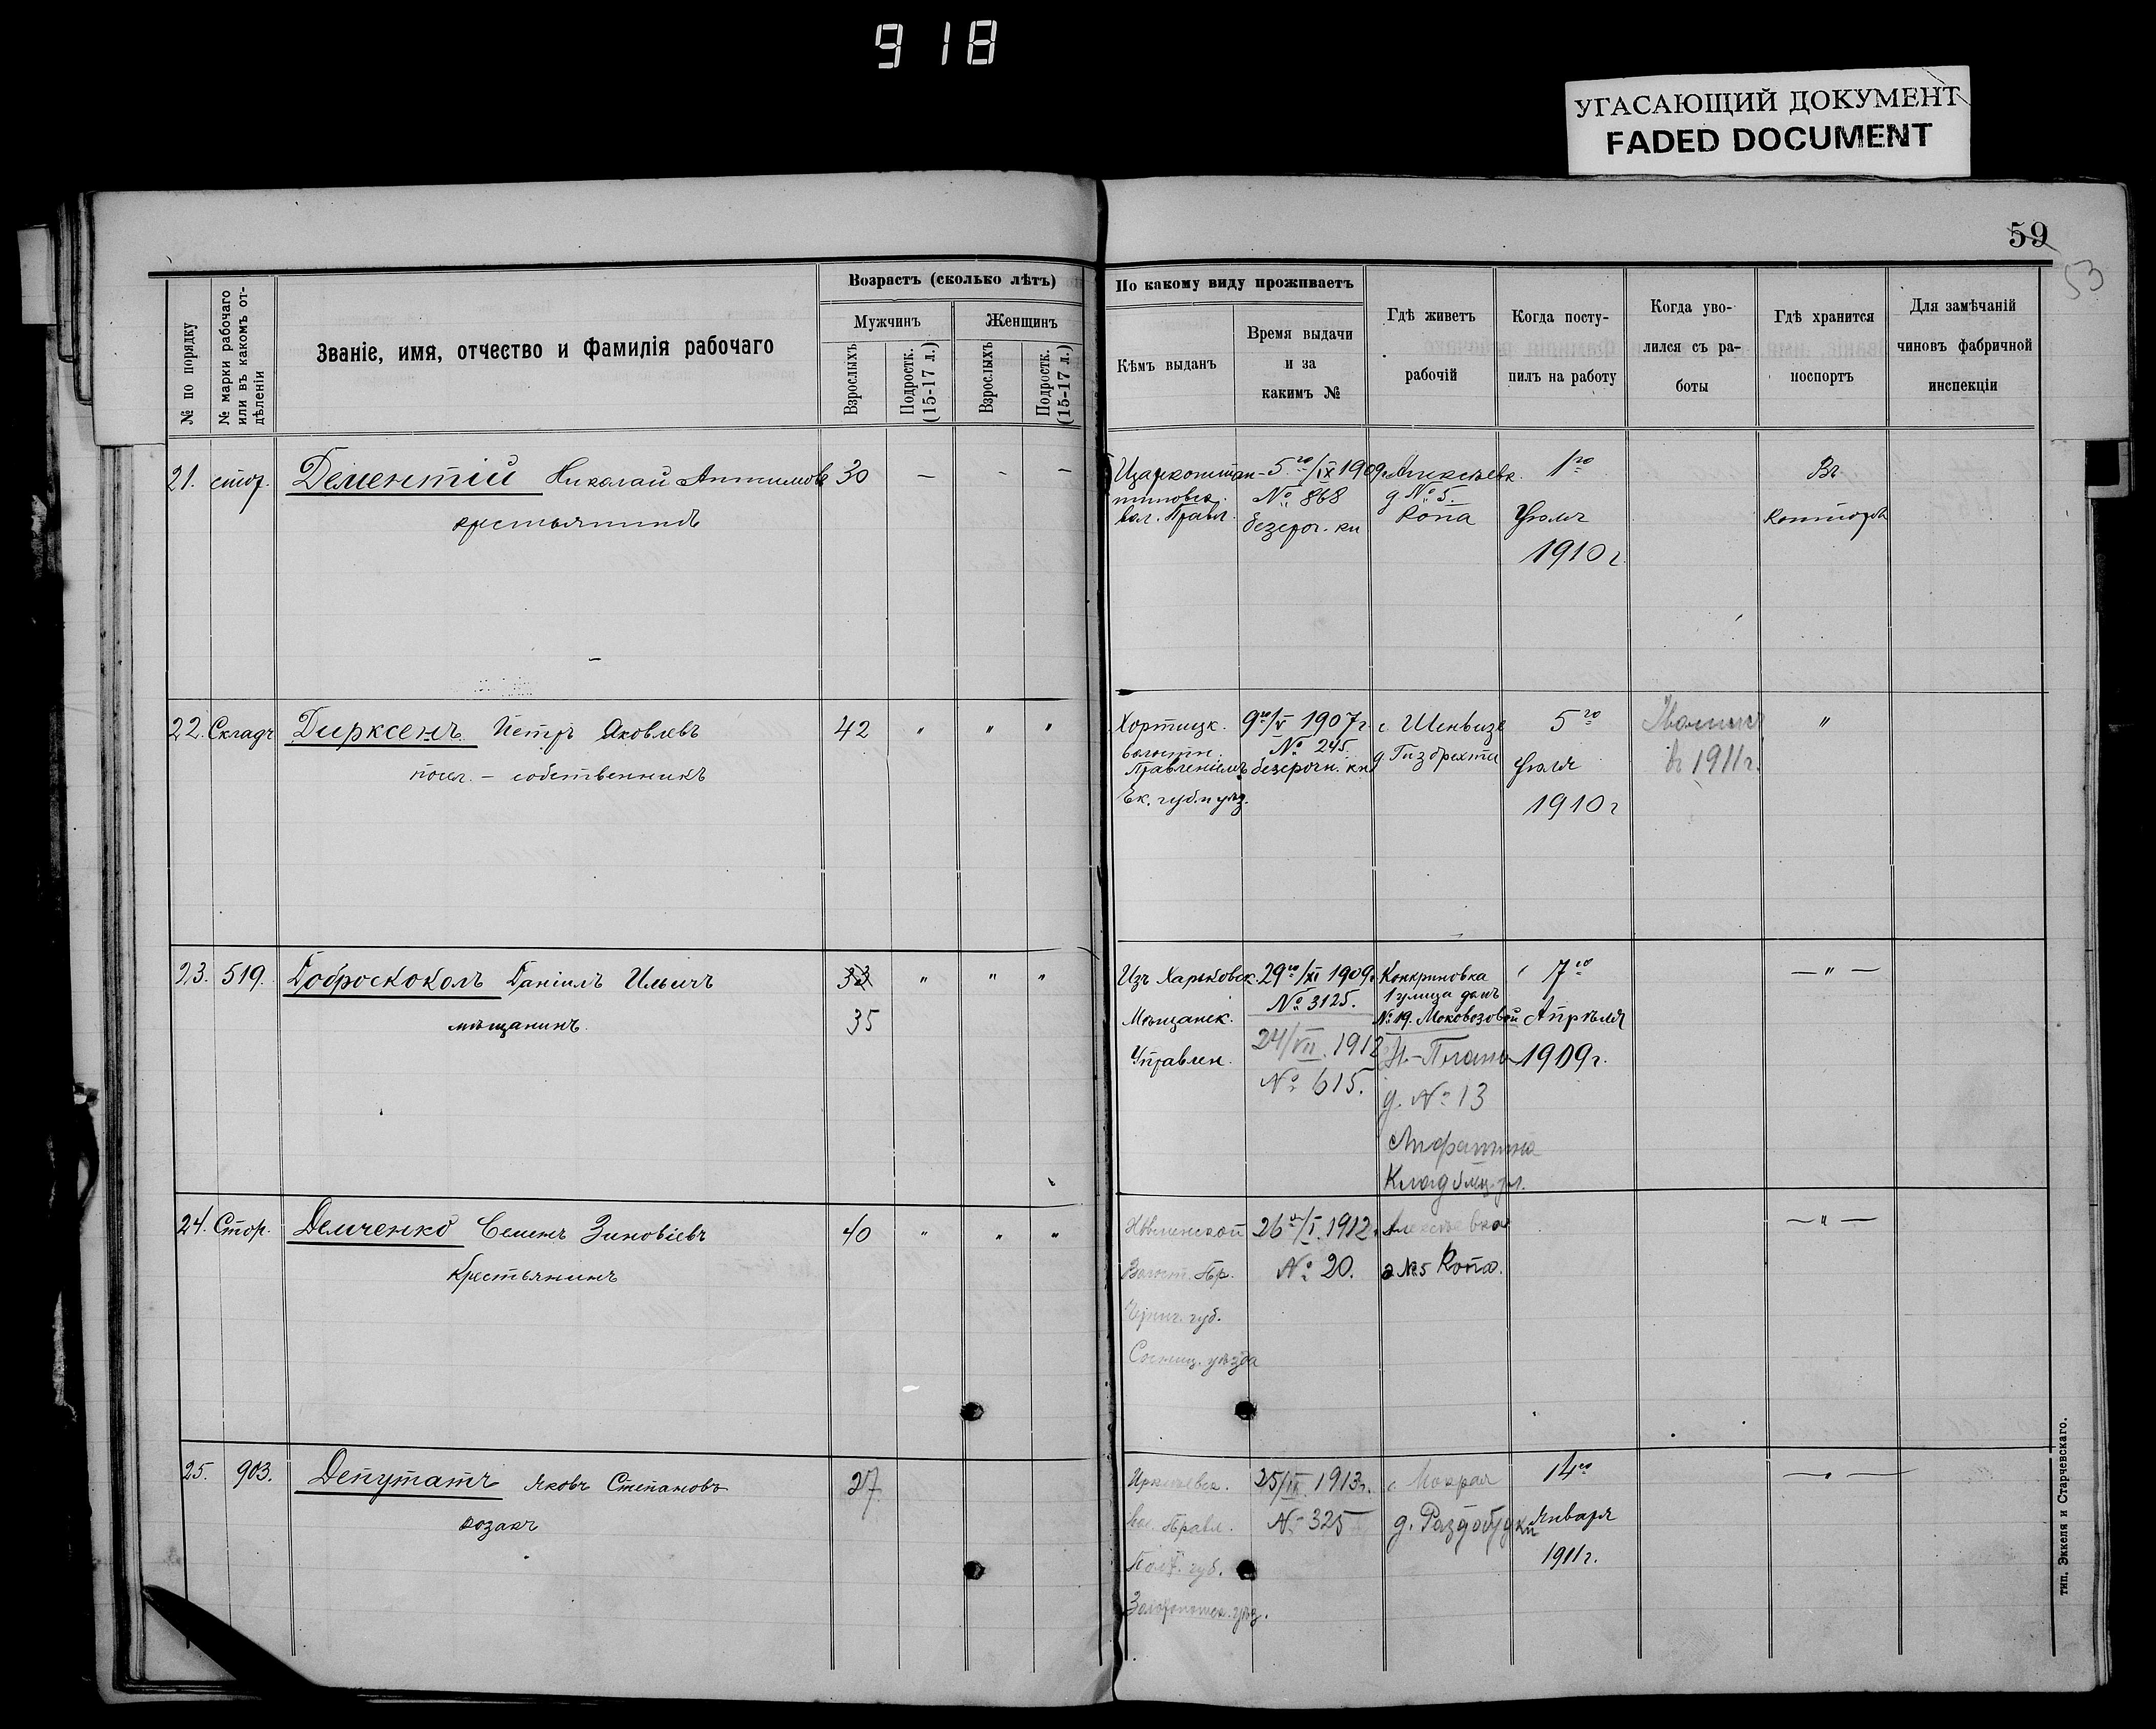 918
УГАСАЮЩИЙ ДОКУМЕНТ
FADED DOCUMENT
59
53
№ по порядку
№ марки рабочаго
или въ какомъ от-
дѣленіи
Званіе, имя, отчество и фамилія рабочаго
Возрастъ (сколько лѣтъ)
Мужчинъ
Женщинъ
Взрослыхъ
Подростк.
(15-17 л.)
Взрослыхъ
Подростк.
(15-17 л.)
По какому виду проживаетъ
Кѣмъ выданъ
Время выдачи
и за
какимъ №
Гдѣ живетъ
рабочій
Когда посту-
пилъ на работу
Когда уво-
лился съ ра-
боты
Гдѣ хранится
поспортъ
Для замѣчаній
чиновъ фабричной
инспекціи
21. стор. Дементій Николай 30 — - —
крестьянинъ
вол. Правл.
5го/IX 1909г.
№ 868
безсроч. кн
д №5.
Копа
1го
Іюля
1910 г
Въ
Конторѣ
22. Складъ Дирксенъ Петръ Яковлевъ 42 " " "
посел. - собственникъ
Хортицк.
волостн.
Правленіемъ
Ек. губ. и уѣз.
9го/V 1907 г.
№ 245.
безсрочн. кн
с. Шенвизе
5го
Іюля
1910 г
въ 1911 г.
"
23. 519. Доброскоколъ Даніилъ Ильичъ 33 " " "
мѣщанинъ. 35
Изъ Харьковск.
Мѣщанск.
Управлен.
29го/XI 1909г.
№ 3125.
24/VII. 1912
№ 615.
Конкриновка
1 улица домъ
№ 19. Моковозовой
д. №13
7го
Апрѣля
1909 г.
— " —
24. Стор. Демченко Семенъ Зиновіевъ 40 " " "
Крестьянинъ
Волост. Пр.
Черниг. губ.
Сосниц. уѣзда
26го/I. 1912г.
№ 20.
Алексѣевка
д №5 Копа.
— " —
25. 903. Депутатъ Яковъ Степановъ 27
козакъ
Иркліевск.
вол. Правл.
Полт. губ.
Золотоношск. уѣз.
25/IX. 1913г.
№ 325
с. Мокрая
14го
Января
1911 г.
тип. Эккеля и Старчевскаго.